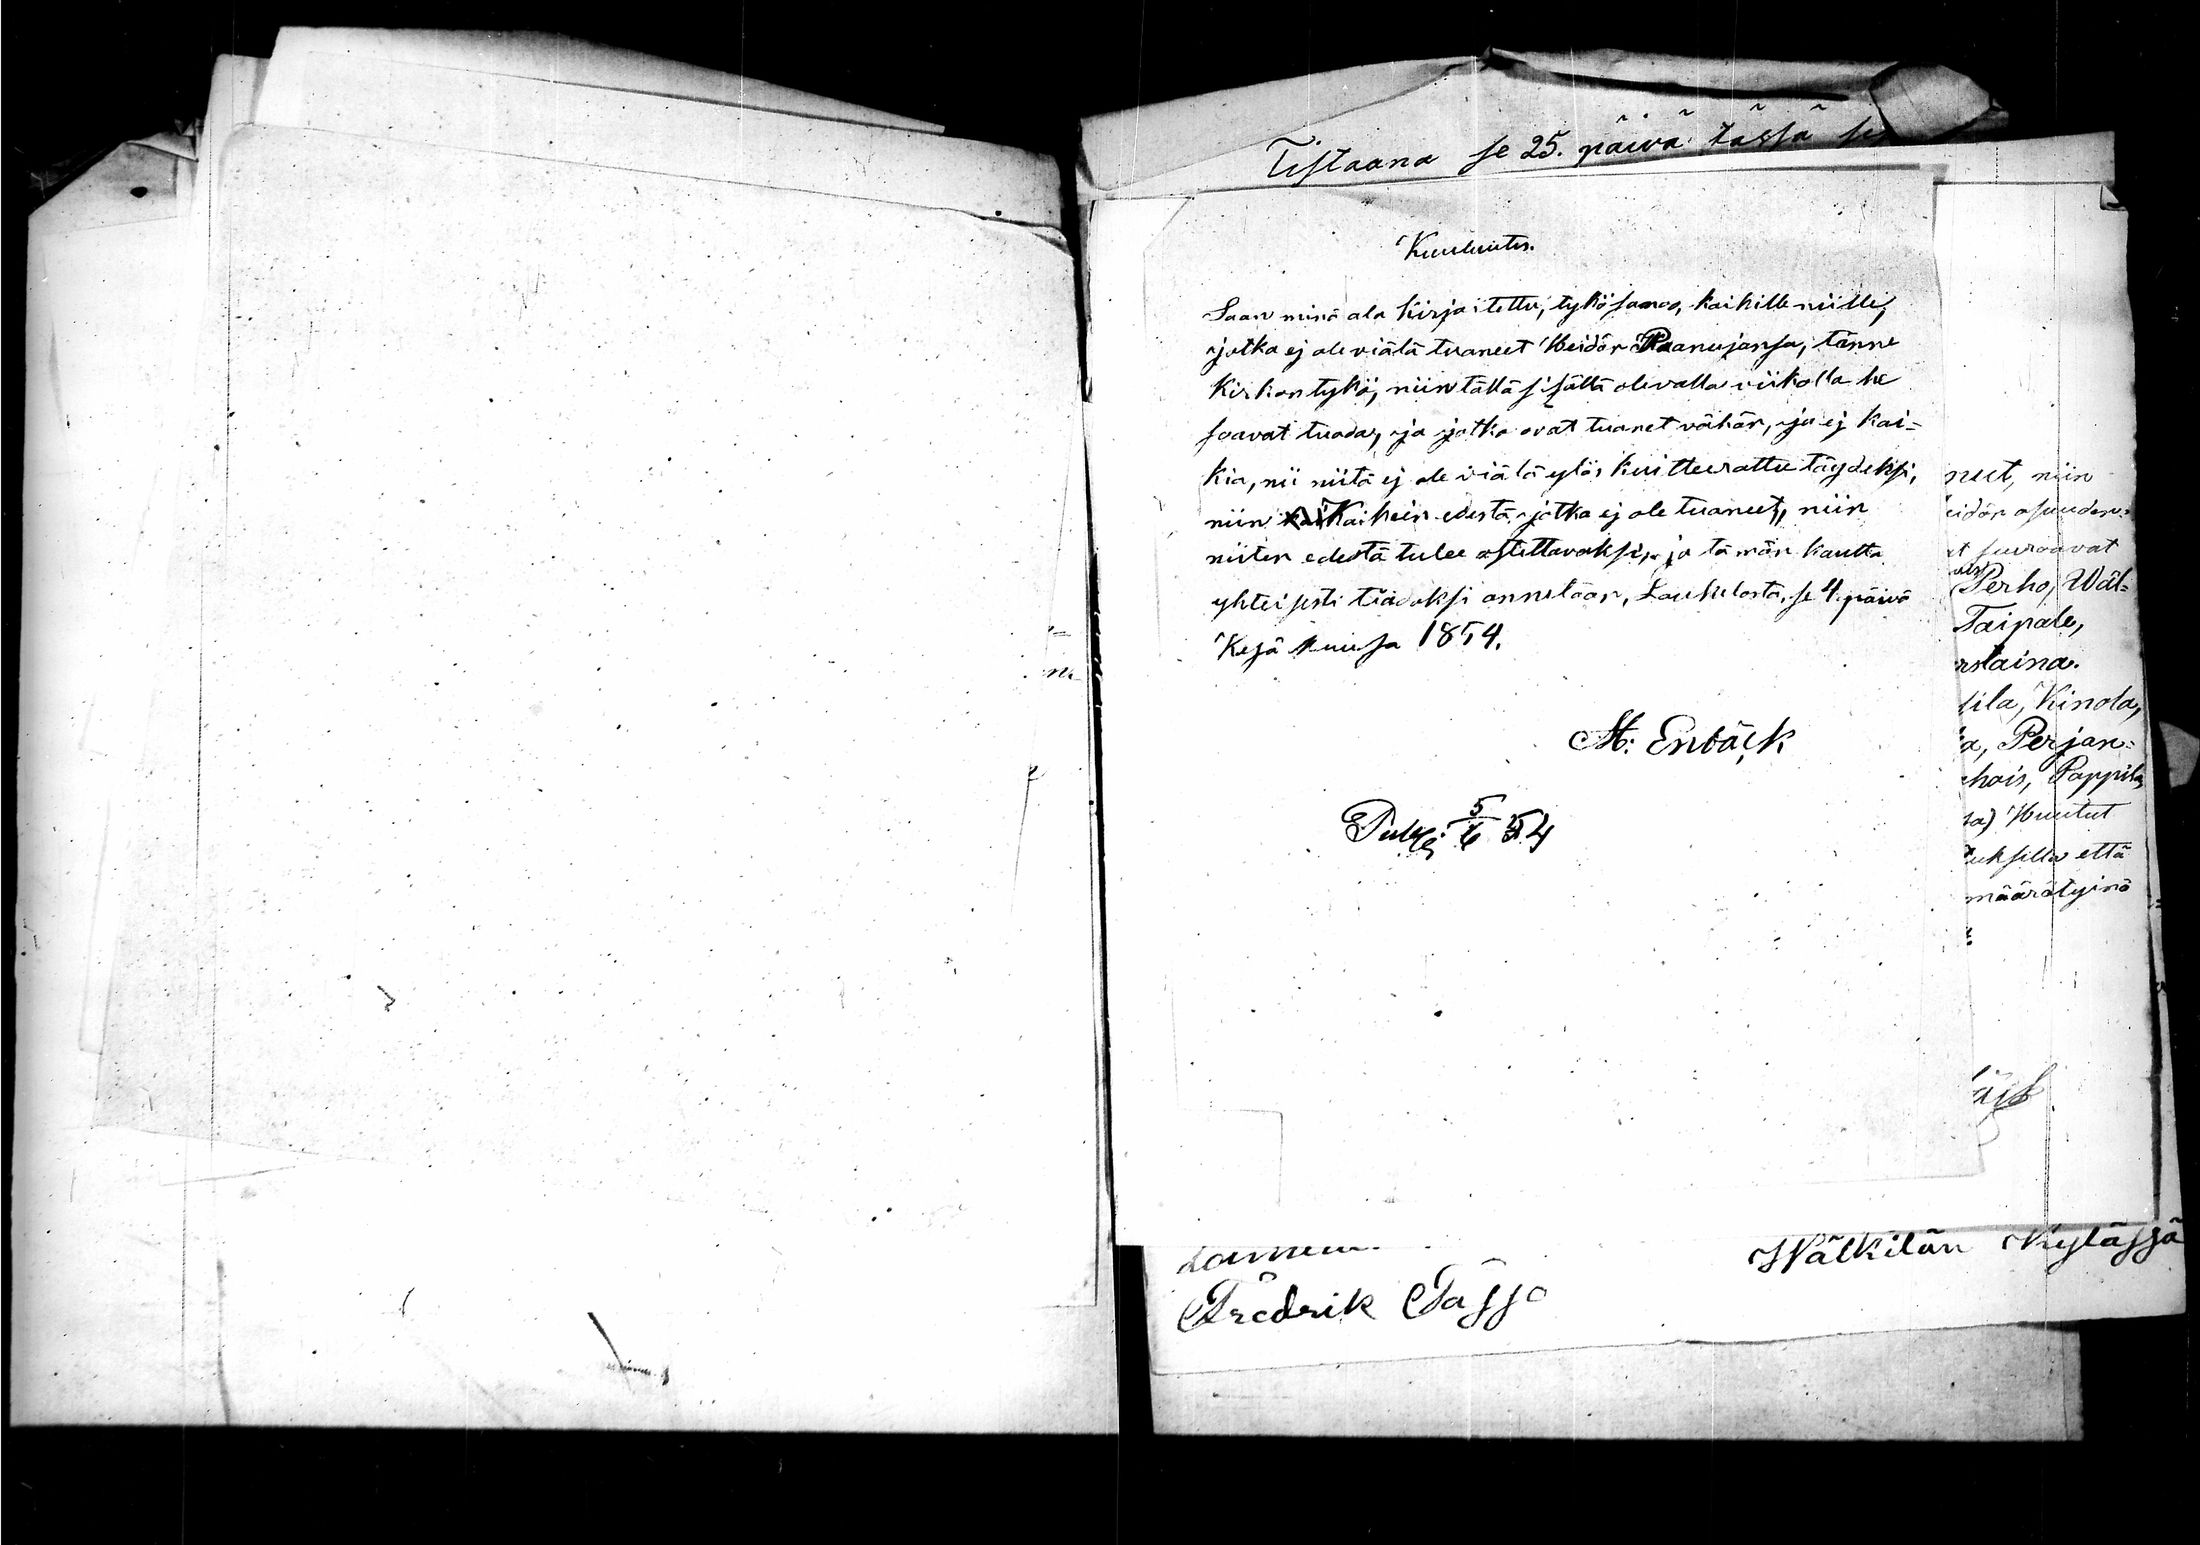 Tistaana se 25. päivä tässä
Kuulutus.
Saan minä ala kirjoitettu, tykö sanoa, kaikille niille,
jotka ej ole viälä tuaneet Heidän Paanujansa, tänne
Kirkon tykö, niin tällä sisällä olevalla viikolla he
saavat tuoda, ja jotka ovat tuanet vähän, ja ej kai=
kia, nii niitä ej ole viälä ylös kuitteerattu täydeksi,
niin Kaikein edestä jotka ej ole tuaneet, niin
niiten edestä tulee astettavaksi, ja tämän kautta
yhteisesti tiädoksi annetaan, Laukelasta, se 4. päivä
Kesä Kuusa 1854.
M: Enbäck
Publ: 5/6 54
neet, niin
eidän osuuden=
at seuraavat
Perho, Wäl=
Taipale,
rstaina.
sila, Kinola,
a, Perjan=
hois, Pappila,
sa) Huutut
uksilla että
määrätyinä
äck
Wälkilän Kylässä
Fredrik Pässo